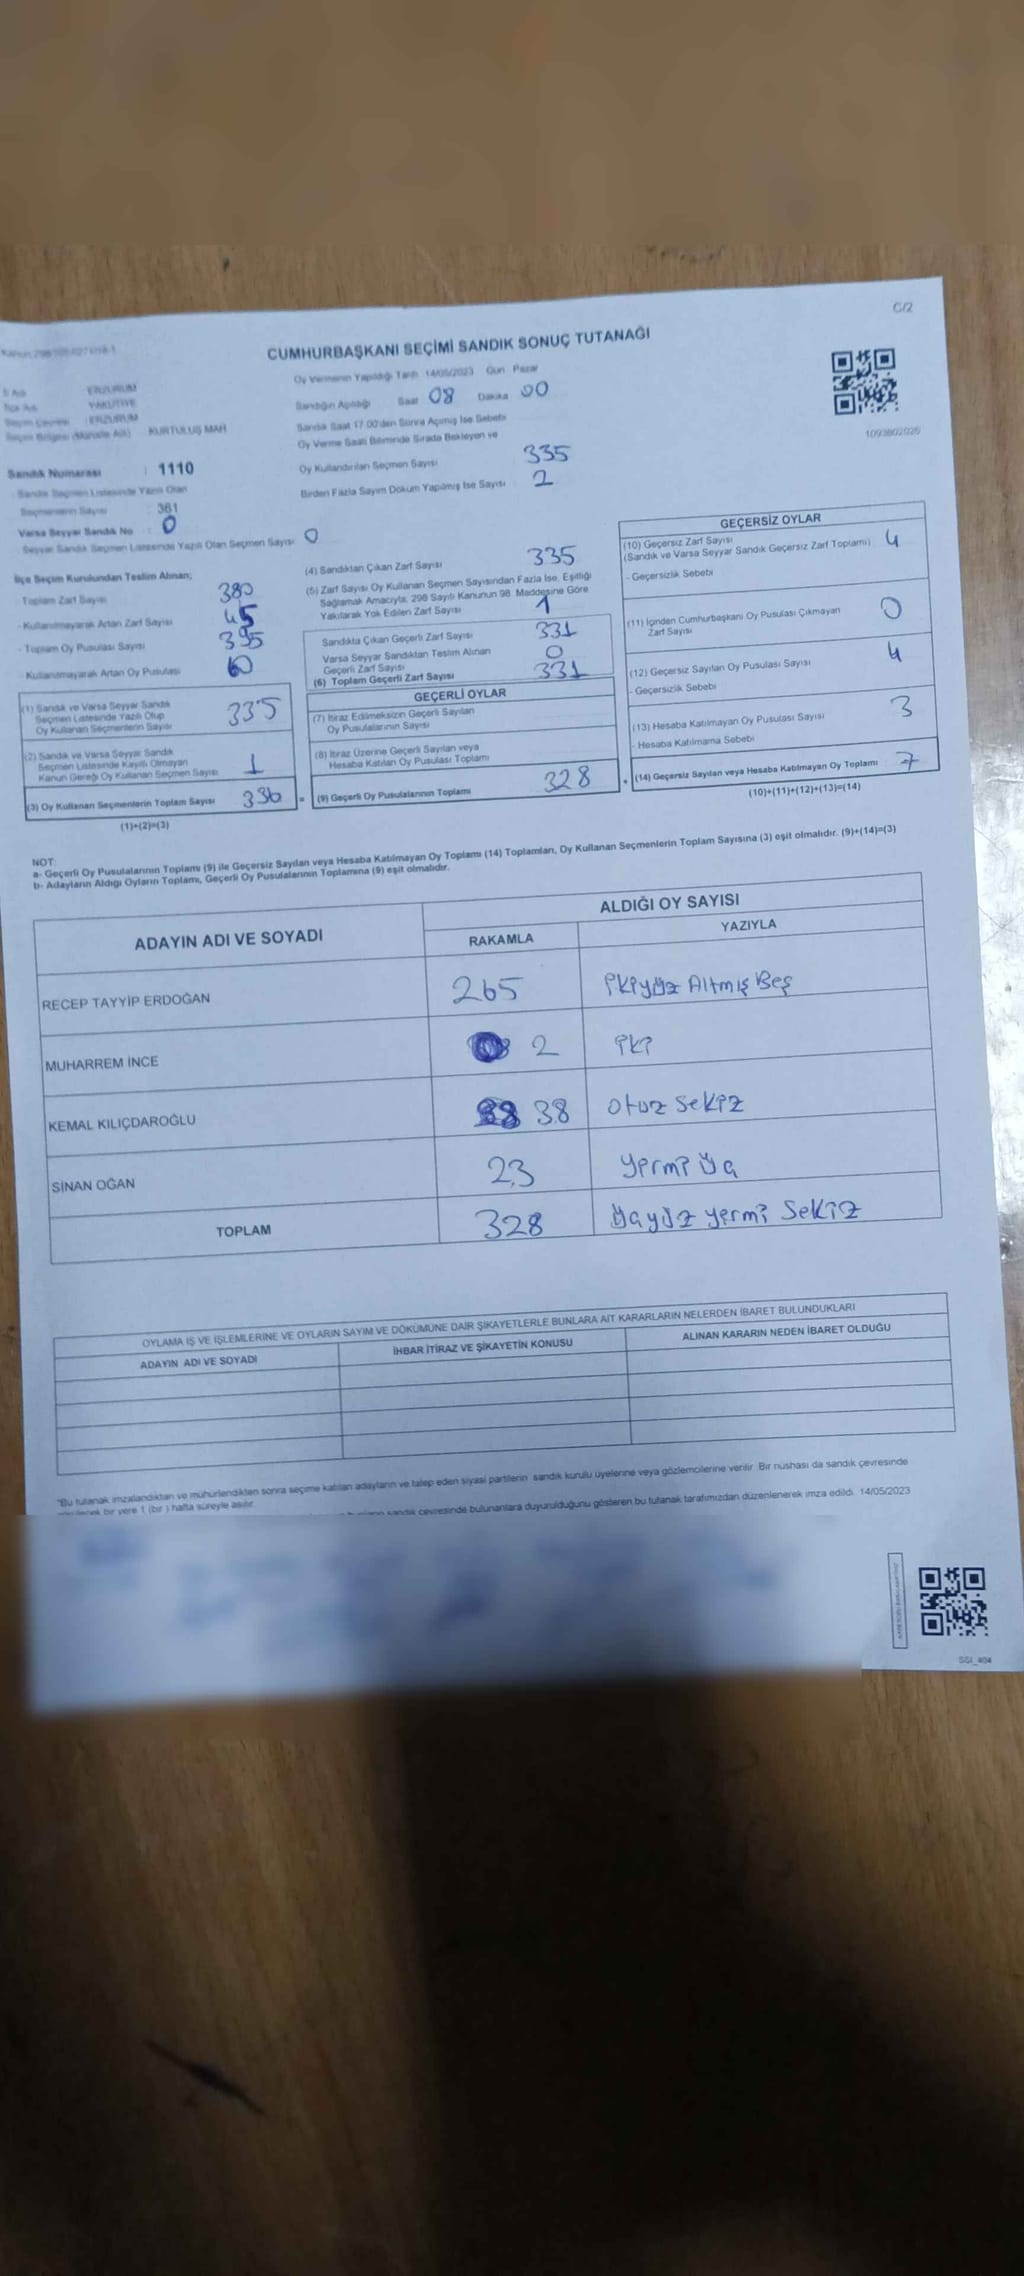 C/2
CUMHURBAŞKANI SEÇİMİ SANDIK SONUÇ TUTANAĞI
Oy Vermenin Yapıldığı Tarih 14/05/2023 Gün Pazar
ERZURUM
YAKUTİYE
ERZURUM
KURTULUŞ MAH
Sandığın Açıldığı Saat 08 Dakika 00
Sandık Saat 17.00'den Sonra Açılmış İse Sebebi
Oy Verme Saati Bitiminde Sırada Bekleyen ve
Oy Kullandırılan Seçmen Sayısı 335
Birden Fazla Sayım Döküm Yapılmış İse Sayısı 2
1093802026
Sandık Numarası : 1110
Sandık Seçmen Listesinde Yazılı Olan
Seçmenlerin Sayısı : 361
Varsa Seyyar Sandık No : 0
Seyyar Sandık Seçmen Listesinde Yazılı Olan Seçmen Sayısı: 0
İlçe Seçim Kurulundan Teslim Alınan;
- Toplam Zarf Sayısı 380
- Kullanılmayarak Artan Zarf Sayısı 45
- Toplam Oy Pusulası Sayısı 395
- Kullanılmayarak Artan Oy Pusulası 60
(1) Sandık ve Varsa Seyyar Sandık
Seçmen Listesinde Yazılı Olup
Oy Kullanan Seçmenlerin Sayısı 335
(2) Sandık ve Varsa Seyyar Sandık
Seçmen Listesinde Kayıtlı Olmayan
Kanun Gereği Oy Kullanan Seçmen Sayısı 1
(3) Oy Kullanan Seçmenlerin Toplam Sayısı 336 =
(1)+(2)=(3)
(4) Sandıktan Çıkan Zarf Sayısı 335
(5) Zarf Sayısı Oy Kullanan Seçmen Sayısından Fazla İse, Eşitliği
Sağlamak Amacıyla; 298 Sayılı Kanunun 98. Maddesine Göre
Yakılarak Yok Edilen Zarf Sayısı 1
Sandıkta Çıkan Geçerli Zarf Sayısı 331
Varsa Seyyar Sandıktan Teslim Alınan
Geçerli Zarf Sayısı 0
(6) Toplam Geçerli Zarf Sayısı 331
GEÇERLİ OYLAR
(7) İtiraz Edilmeksizin Geçerli Sayılan
Oy Pusulalarının Sayısı
(8) İtiraz Üzerine Geçerli Sayılan veya
Hesaba Katılan Oy Pusulası Toplamı
(9) Geçerli Oy Pusulalarının Toplamı 328 +
GEÇERSİZ OYLAR
(10) Geçersiz Zarf Sayısı
(Sandık ve Varsa Seyyar Sandık Geçersiz Zarf Toplamı) 4
- Geçersizlik Sebebi
(11) İçinden Cumhurbaşkanı Oy Pusulası Çıkmayan
Zarf Sayısı 0
(12) Geçersiz Sayılan Oy Pusulası Sayısı 4
- Geçersizlik Sebebi
(13) Hesaba Katılmayan Oy Pusulası Sayısı 3
- Hesaba Katılmama Sebebi
(14) Geçersiz Sayılan veya Hesaba Katılmayan Oy Toplamı 7
(10)+(11)+(12)+(13)=(14)
NOT:
a- Geçerli Oy Pusulalarının Toplamı (9) ile Geçersiz Sayılan veya Hesaba Katılmayan Oy Toplamı (14) Toplamları, Oy Kullanan Seçmenlerin Toplam Sayısına (3) eşit olmalıdır. (9)+(14)=(3)
b- Adayların Aldığı Oyların Toplamı, Geçerli Oy Pusulalarının Toplamına (9) eşit olmalıdır.
ADAYIN ADI VE SOYADI
ALDIĞI OY SAYISI
RAKAMLA YAZIYLA
RECEP TAYYİP ERDOĞAN 265 İKİYÜZ Altmış Beş
MUHARREM İNCE 2 İKİ
KEMAL KILIÇDAROĞLU 38 otuz sekiz
SİNAN OĞAN 23 yirmi üç
TOPLAM 328 üçyüz yirmi sekiz
OYLAMA İŞ VE İŞLEMLERİNE VE OYLARIN SAYIM VE DÖKÜMÜNE DAİR ŞİKAYETLERLE BUNLARA AİT KARARLARIN NELERDEN İBARET BULUNDUKLARI
ADAYIN ADI VE SOYADI İHBAR İTİRAZ VE ŞİKAYETİN KONUSU ALINAN KARARIN NEDEN İBARET OLDUĞU
"Bu tutanak imzalandıktan ve mühürlendikten sonra seçime katılan adayların ve talep eden siyasi partilerin sandık kurulu üyelerine veya gözlemcilerine verilir. Bir nüshası da sandık çevresinde
bir yere 1 (bir) hafta süreyle asılır.
sandık çevresinde bulunanlara duyurulduğunu gösteren bu tutanak tarafımızdan düzenlenerek imza edildi. 14/05/2023
SSI_404